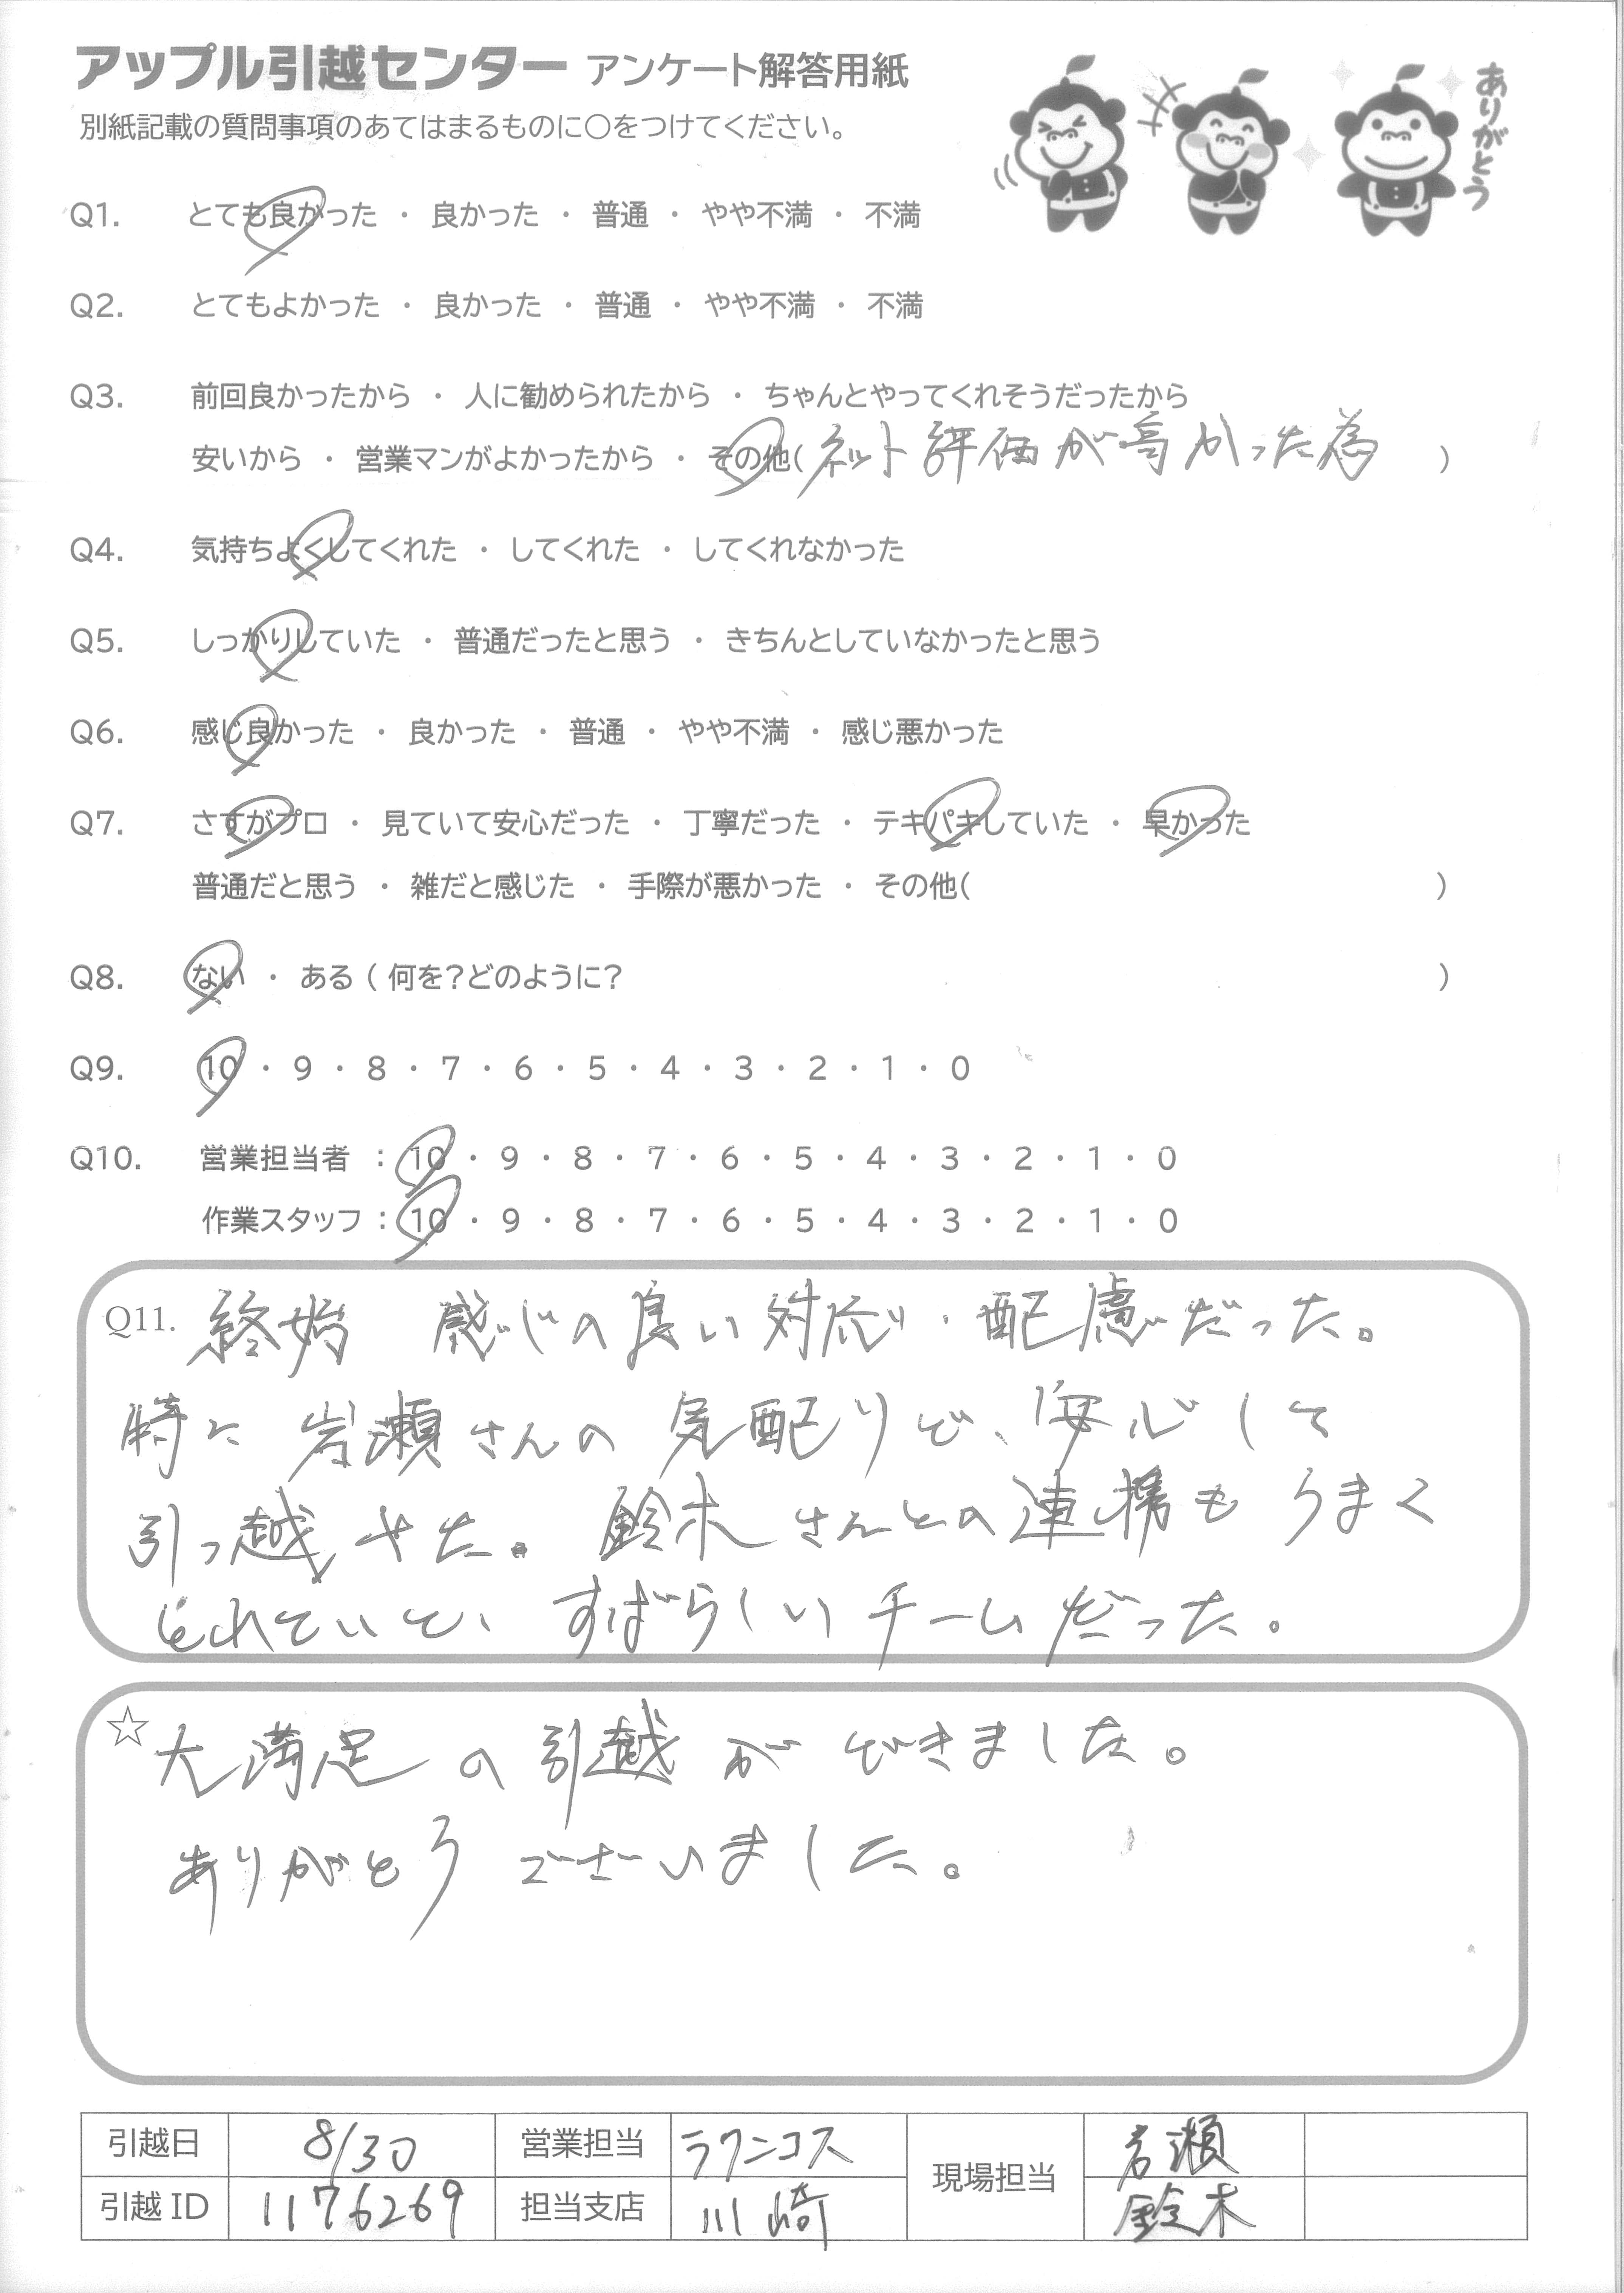 アップル引越センター アンケート解答用紙
別紙記載の質問事項のあてはまるものに○をつけてください。
ありがとう
Q1. とても良かった ・ 良かった ・ 普通 ・ やや不満 ・ 不満
Q2. とてもよかった ・ 良かった ・ 普通 ・ やや不満 ・ 不満
Q3. 前回良かったから ・ 人に勧められたから ・ ちゃんとやってくれそうだったから
安いから ・ 営業マンがよかったから ・ その他( ネット評価が高かった為 )
Q4. 気持ちよくしてくれた ・ してくれた ・ してくれなかった
Q5. しっかりしていた ・ 普通だったと思う ・ きちんとしていなかったと思う
Q6. 感じ良かった ・ 良かった ・ 普通 ・ やや不満 ・ 感じ悪かった
Q7. さすがプロ ・ 見ていて安心だった ・ 丁寧だった ・ テキパキしていた ・ 早かった
普通だと思う ・ 雑だと感じた ・ 手際が悪かった ・ その他( )
Q8. ない ・ ある ( 何を?どのように? )
Q9. 10 ・ 9 ・ 8 ・ 7 ・ 6 ・ 5 ・ 4 ・ 3 ・ 2 ・ 1 ・ 0
Q10. 営業担当者 : 10 ・ 9 ・ 8 ・ 7 ・ 6 ・ 5 ・ 4 ・ 3 ・ 2 ・ 1 ・ 0
作業スタッフ : 10 ・ 9 ・ 8 ・ 7 ・ 6 ・ 5 ・ 4 ・ 3 ・ 2 ・ 1 ・ 0
Q11. 終始 感じの良い対応・配慮だった。
特に 岩瀬さんの気配りで、安心して
引っ越せた。鈴木さんとの連携もうまく
とれていて、すばらしいチームだった。
☆ 大満足の引越ができました。
ありがとうございました。
引越日 8/30 営業担当 ラクニコス 現場担当 岩瀬
引越 ID 1176269 担当支店 川崎 鈴木